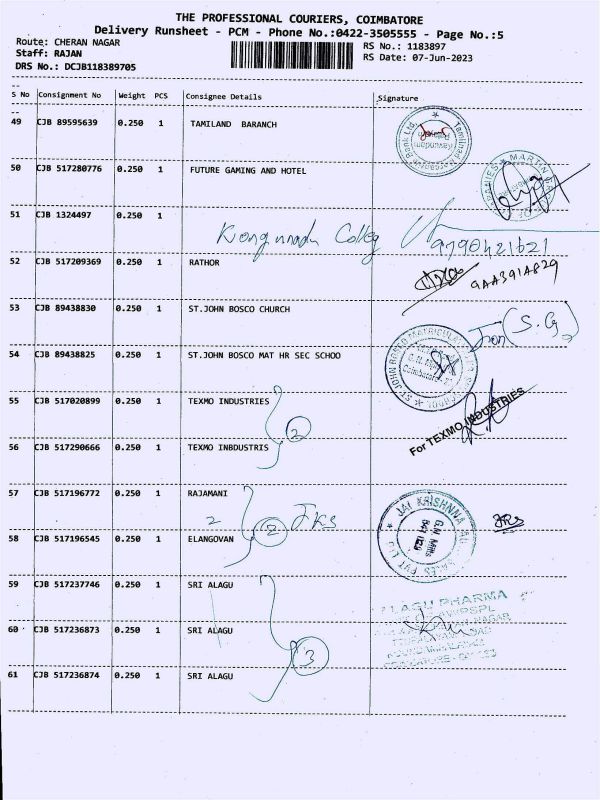 THE PROFESSIONAL COURIERS, COIMBATORE
Delivery Runsheet - PCM - Phone No.:0422-3505555 - Page No.:5
Route: CHERAN NAGAR
RS No.: 1183897
Staff: RAJAN
RS Date: 07-Jun-2023
DRS No.: DCJB118389705
S No Consignment No Weight PCS Consignee Details Signature
49 CJB 89595639 0.250 1 TAMILAND BARANCH
50 CJB 517280776 0.250 1 FUTURE GAMING AND HOTEL
51 CJB 1324497 0.250 1
Kongunadu Colleg
9790421621
52 CJB 517209369 0.250 1 RATHOR
53 CJB 89438830 0.250 1 ST.JOHN BOSCO CHURCH
(S.G)
54 CJB 89438825 0.250 1 ST.JOHN BOSCO MAT HR SEC SCHOO
55 CJB 517020899 0.250 1 TEXMO INDUSTRIES
2
For TEXMO INDUSTRIES
56 CJB 517290666 0.250 1 TEXMO INBDUSTRIS
57 CJB 517196772 0.250 1 RAJAMANI
2 2 JKS
JAI KRISHNNA
G.N. Mills
641 029
58 CJB 517196545 0.250 1 ELANGOVAN
59 CJB 517237746 0.250 1 SRI ALAGU
ALAGU PHARMA
60 CJB 517236873 0.250 1 SRI ALAGU
3
61 CJB 517236874 0.250 1 SRI ALAGU